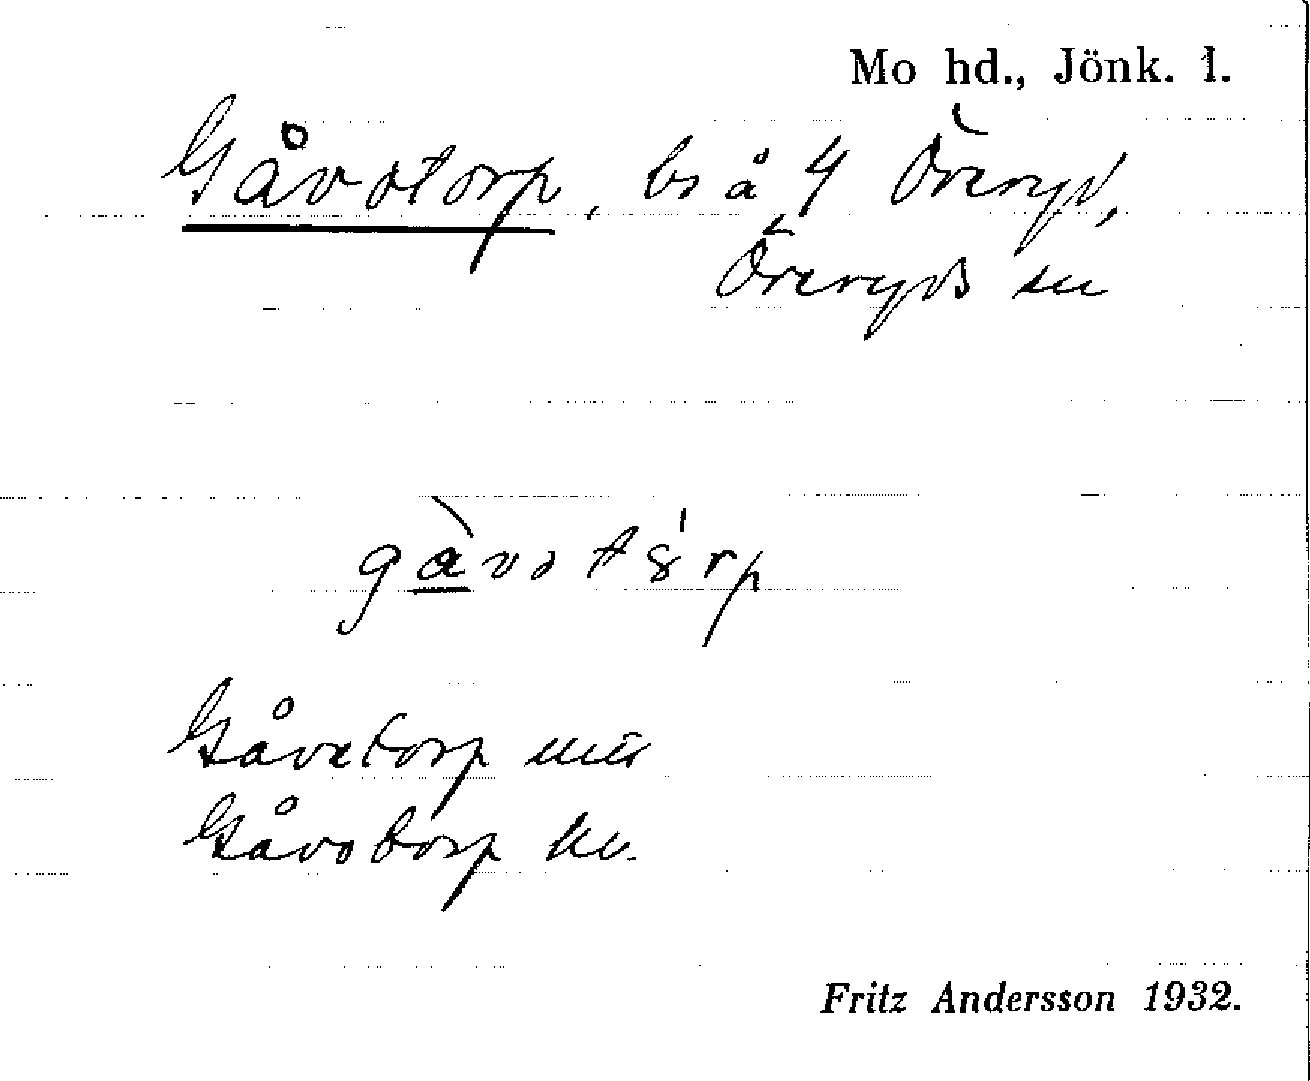 Mo hd., Jönk. l.
Gåvotorp, bs å 4 Öreryd,
Öreryds sn
gàvotȣ́rp
Gåvetorp
Gåvotorp kv.
Fritz Andersson 1932.